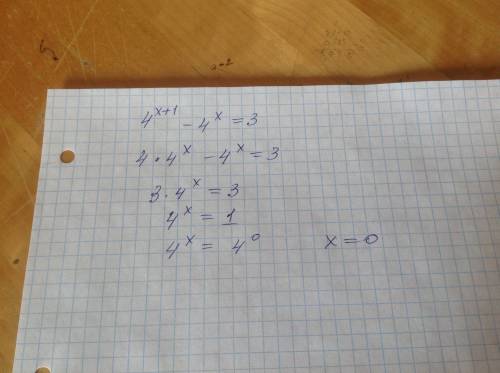 4^(x+1) - 4^x = 3
4 · 4^x - 4^x = 3
3 · 4^x = 3
4^x = 1
4^x = 4^0    x = 0